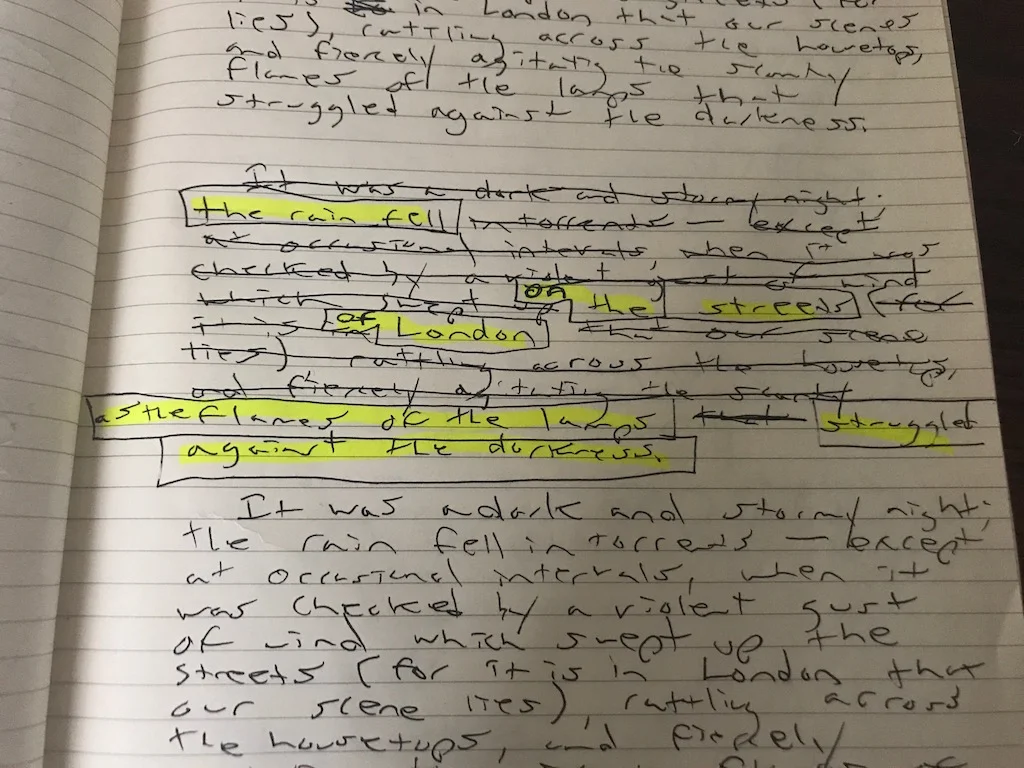 in London that our scenes
lies), rattling across the housetops,
and fiercely agitating the scanty
flames of the lamps that
struggled against the darkness.
It was a dark and stormy night;
the rain fell in torrents — except
at occasional intervals, when it was
checked by a violent gust of wind
which swept up on the streets (for
it is of London that our scene
lies) rattling across the housetops,
and fiercely agitating the scanty
as the flames of the lamps that struggled
against the darkness.
It was a dark and stormy night;
the rain fell in torrents — except
at occasional intervals, when it
was checked by a violent gust
of wind which swept up the
streets (for it is in London that
our scene lies), rattling across
the housetops, and fiercely